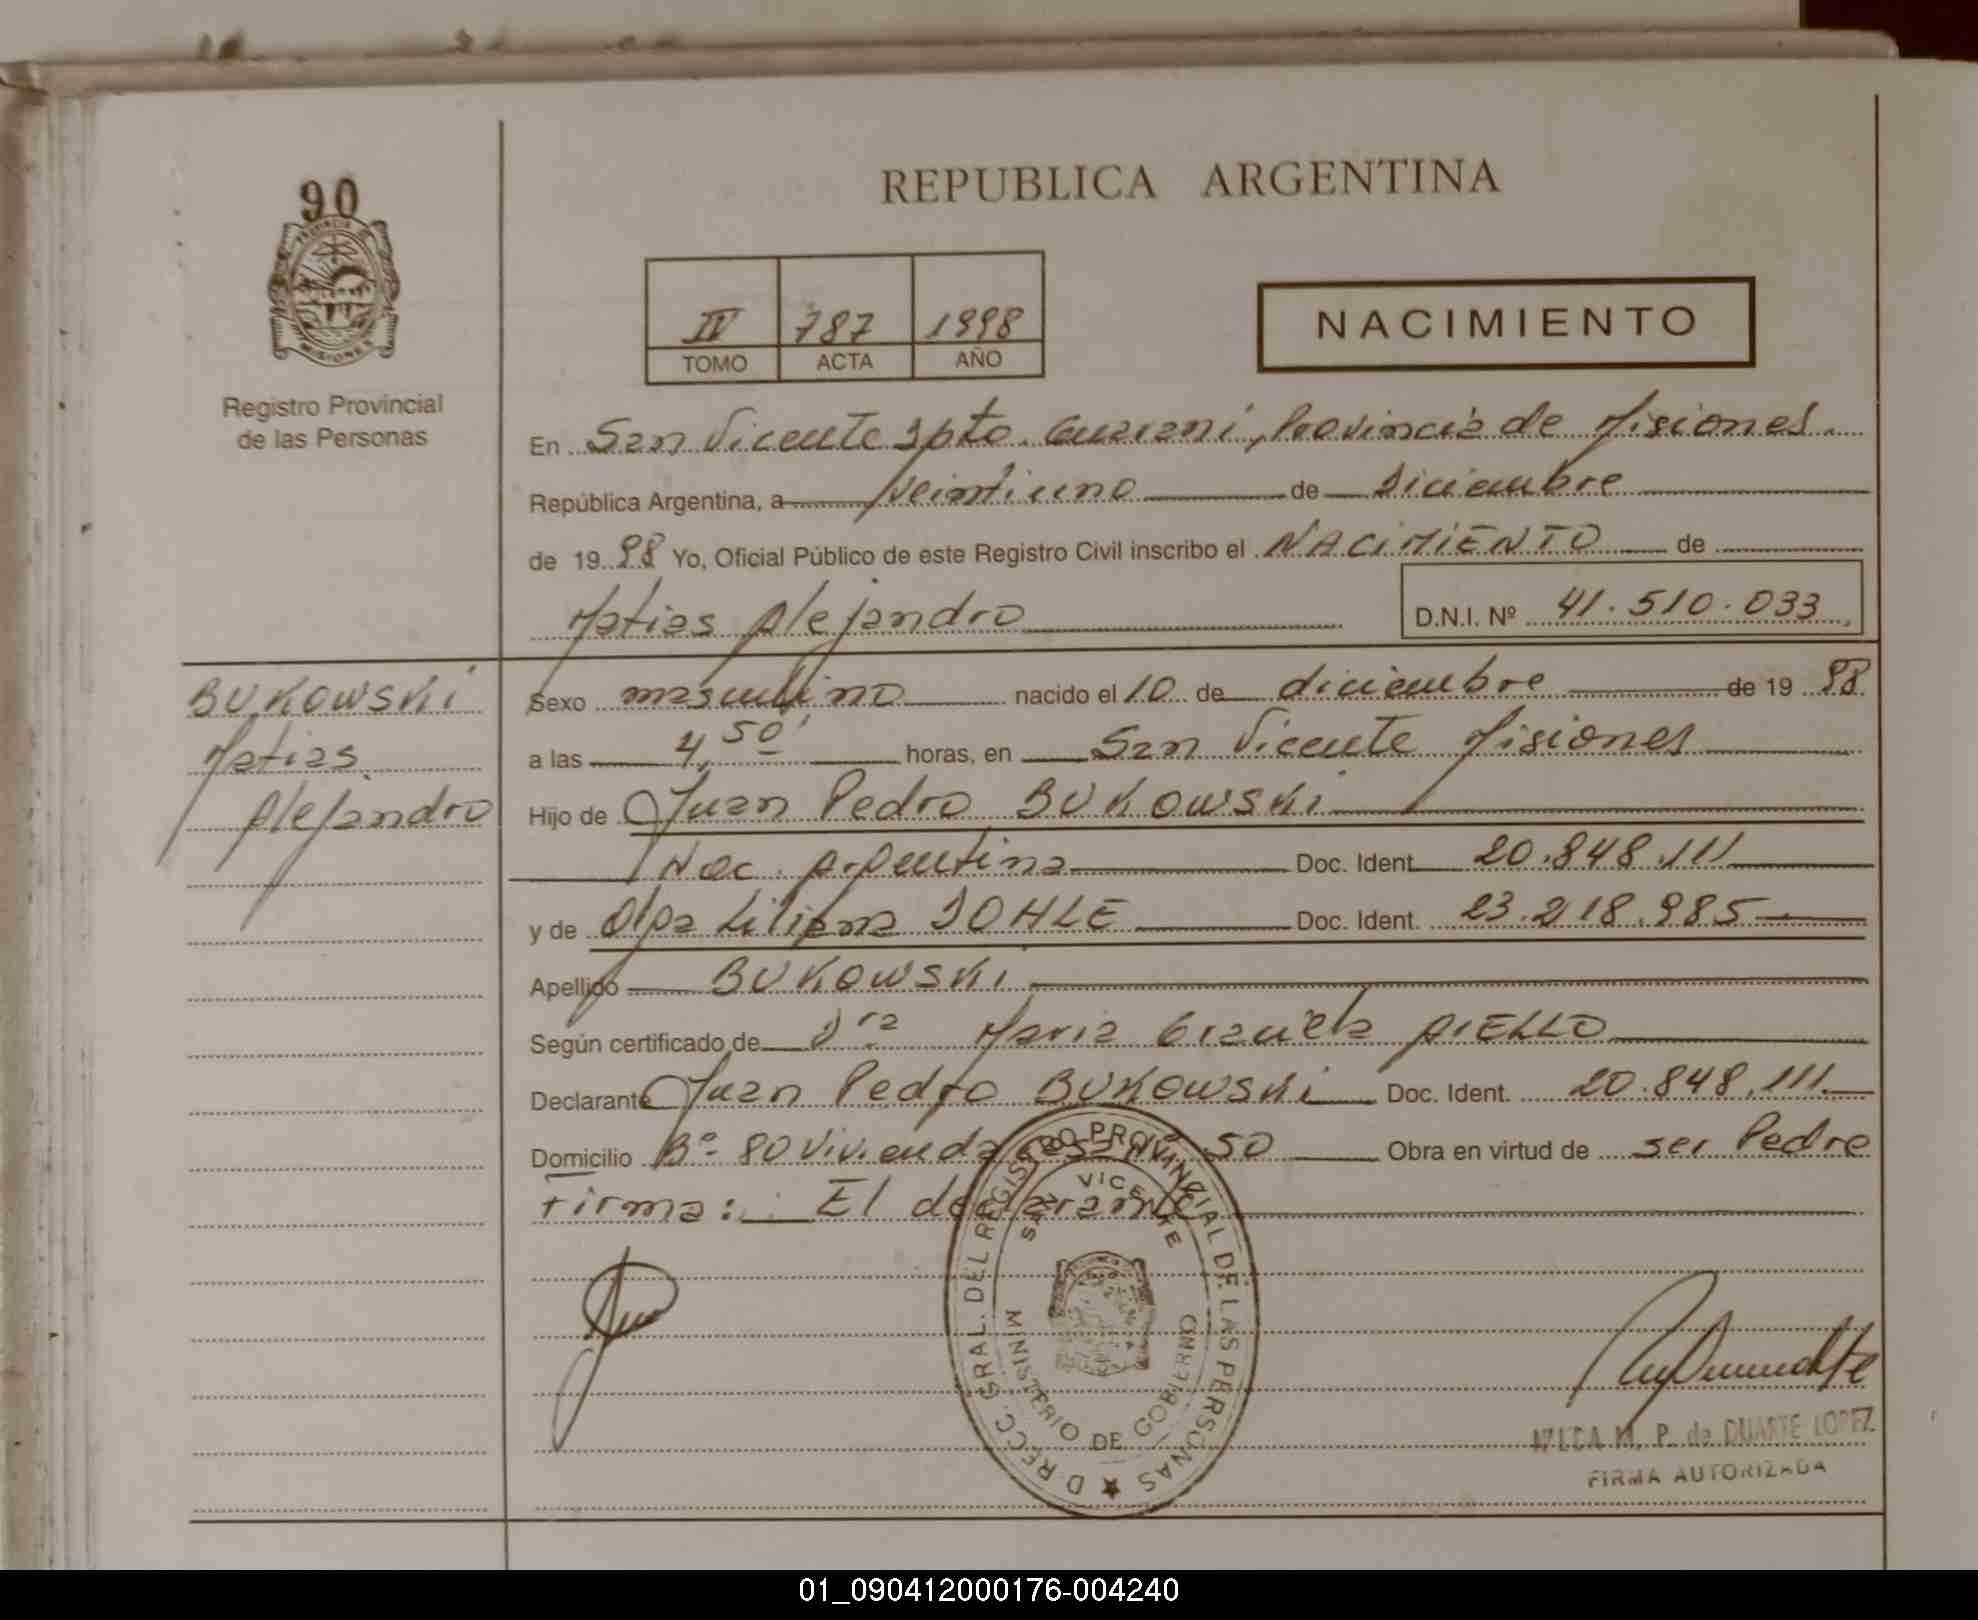 90
PROVINCIA DE
MISIONES
Registro Provincial
de las Personas
REPUBLICA ARGENTINA
IV 787 1998
TOMO ACTA AÑO
NACIMIENTO
En San Vicente Dpto. Guarani, Provincia de Misiones.
República Argentina, a veintiuno de Diciembre
de 1998 Yo, Oficial Público de este Registro Civil inscribo el NACIMIENTO de
Matias Alejandro
D.N.I. Nº 41.510.033
BUKOWSKI
Matias
Alejandro
Sexo masculino nacido el 10 de diciembre de 1998
a las 4,50' horas, en San Vicente Misiones
Hijo de Juan Pedro BUKOWSKI
Nac. Argentina Doc. Ident. 20.848.111
y de Olga Liliana DOHLE Doc. Ident. 23.218.985
Apellido BUKOWSKI
Según certificado de Dra Maria Graciela AIELLO
Declarante Juan Pedro BUKOWSKI Doc. Ident. 20.848.111
Domicilio Bº 80 Viviendas Casa Nº 50 Obra en virtud de ser Padre
Firma: El declarante
DIRECC. GRAL. DEL REGISTRO PROVINCIAL DE LAS PERSONAS
SAN VICENTE
MINISTERIO DE GOBIERNO
M. P. de DUARTE LOPEZ
FIRMA AUTORIZADA
01_090412000176-004240